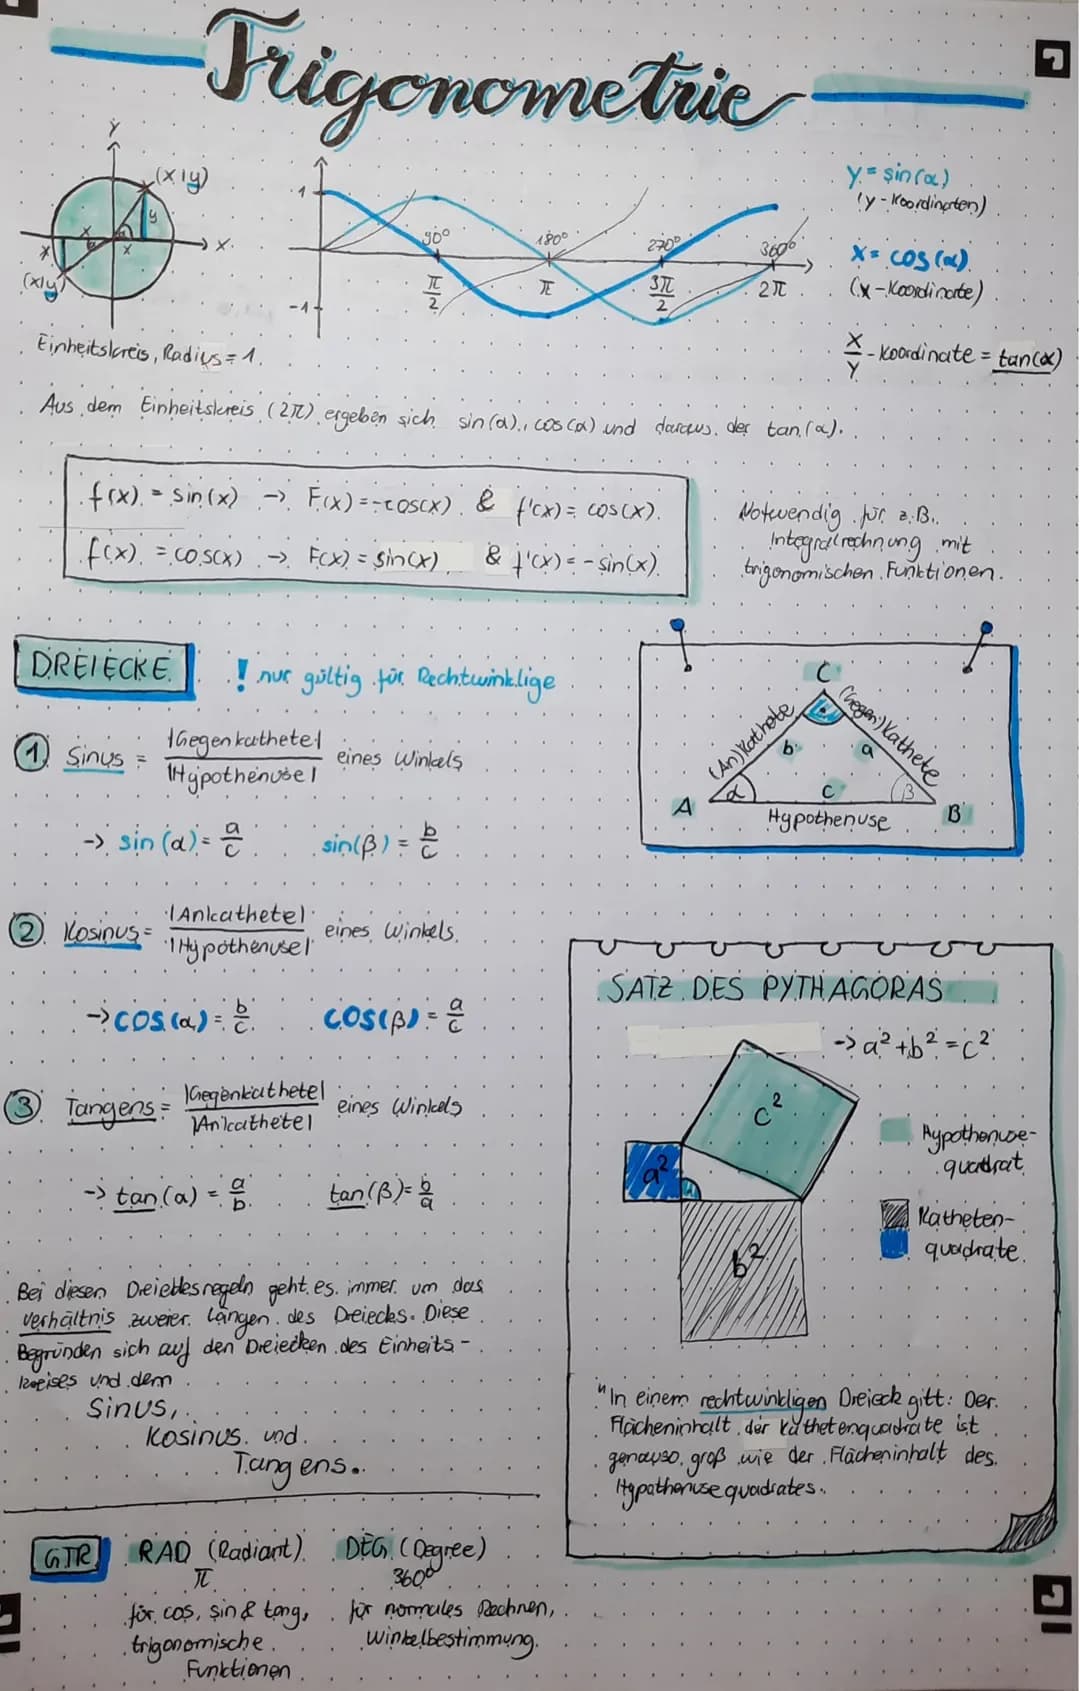 Trigonometrie
y
(x|y)
y
x
α
α
x
x
(x|y)
x
1
-1
90°
180°
270°
360°
π/2
π
3π/2
2π
y = sin(α)
(y-Koordinaten)
x = cos(α)
(x-Koordinate)
x/y -Koordinate = tan(α)
Einheitskreis, Radius = 1.
Aus dem Einheitskreis (2π) ergeben sich sin(α), cos(α) und daraus der tan(α).
f(x) = sin(x) -> F(x) = -cos(x) & f'(x) = cos(x).
f(x) = cos(x) -> F(x) = sin(x) & f'(x) = -sin(x).
Notwendig für z.B.
Integralrechnung mit
trigonomischen Funktionen.
DREIECKE
! nur gültig für Rechtwinklige
① Sinus = |Gegenkathete| / |Hypothenuse| eines Winkels
-> sin(α) = a/c sin(β) = b/c
C
(An)Kathete
(Gegen)Kathete
b
a
α
c
β
A
B
Hypothenuse
② Kosinus = |Ankathete| / |Hypothenuse| eines Winkels.
-> cos(α) = b/c. cos(β) = a/c
③ Tangens = |Gegenkathete| / |Ankathete| eines Winkels
-> tan(α) = a/b. tan(β) = b/a
Bei diesen Dreiecksregeln geht es immer um das
Verhältnis zweier Längen des Dreiecks. Diese
Begründen sich auf den Dreiecken des Einheits-
kreises und dem
Sinus,
Kosinus und
Tangens.
SATZ DES PYTHAGORAS
-> a² + b² = c²
c²
a²
b²
Hypothenuse-
quadrat
Katheten-
quadrate
"In einem rechtwinkligen Dreieck gilt: Der
Flächeninhalt der Kathetenquadrate ist
genauso groß wie der Flächeninhalt des
Hypothenusequadrates.
GTR
RAD (Radiant)
π
für cos, sin & tang,
trigonomische
Funktionen
DEG (Degree)
360°
für normales Rechnen,
Winkelbestimmung.